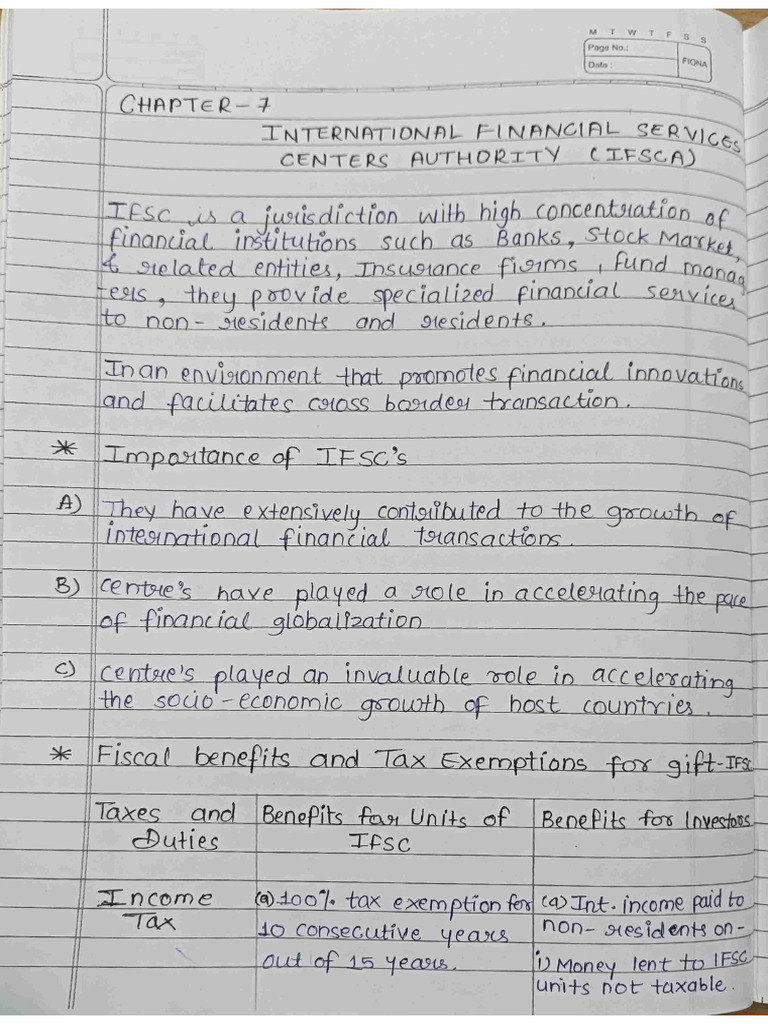 M T W T F S S
Page No.:
Date:
FIONA
CHAPTER-7
INTERNATIONAL FINANCIAL SERVICES
CENTERS AUTHORITY (IFSCA)
IFSC is a jurisdiction with high concentration of
financial institutions such as Banks, Stock Market,
& related entities, Insurance firms, fund manag
ers, they provide specialized financial services
to non-residents and residents.
In an environment that promotes financial innovations
and facilitates cross border transaction.
* Importance of IFSC's
A) They have extensively contributed to the growth of
international financial transactions.
B) centre's have played a role in accelerating the pace
of financial globalization
C) centre's played an invaluable role in accelerating
the socio-economic growth of host countries.
* Fiscal benefits and Tax Exemptions for gift-IFSC
Taxes and Duties
Benefits for Units of IFSC
Benefits for Investors
Income Tax
(a) 100% tax exemption for
10 consecutive years
out of 15 years.
(a) Int. income paid to
non-residents on-
i) Money lent to IFSC
units not taxable.